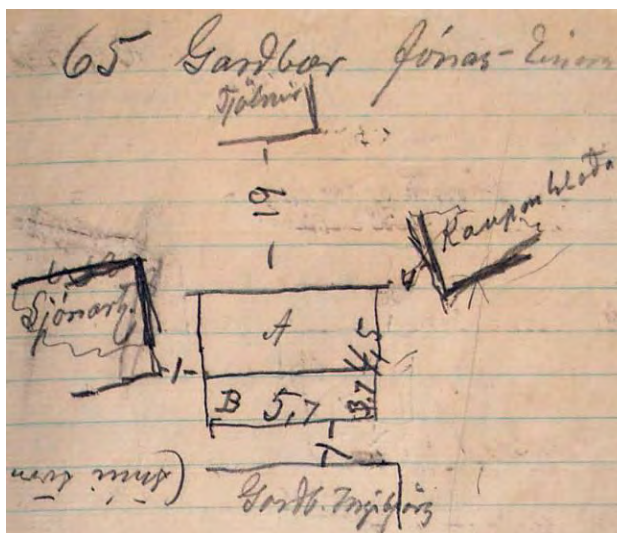 65 Gardbær Jónas-Einars
Fjölnir
19
Kauponhlaða
Sjónarh.
A
4,5
1
B 5,7 3,7
Gardb. Ingibjörg